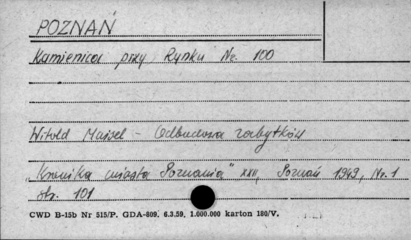 POZNAŃ
Kamienica przy Rynku Nr. 100
Witold Maisel - Odbudowa zabytków
„Kronika miasta Poznania" XXII, Poznań 1949, Nr. 1
str. 101
CWD B-15b Nr 515/P. GDA-809. 6.3.59. 1.000.000 karton 180/V.